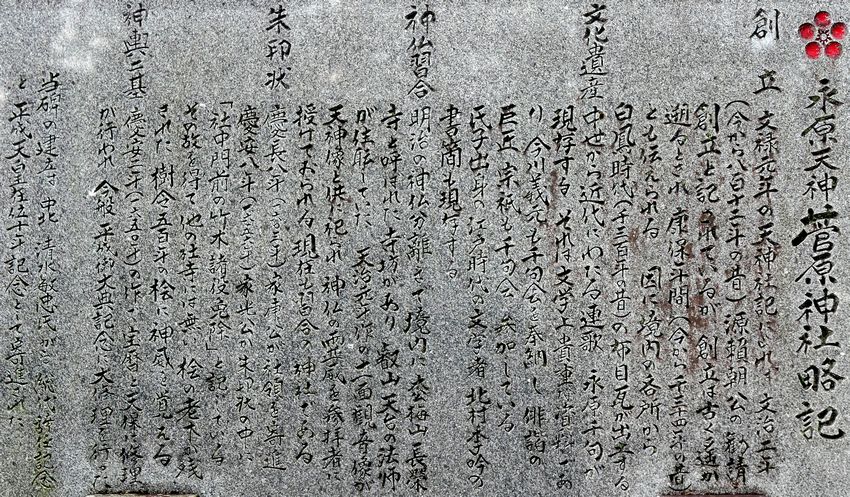 永原天神 菅原神社略記
創立 文禄元年の天神社記によれば 文治二年
(今から八百十二年の昔)源頼朝公の勧請
創立と記されているが 創立は古く遥か
遡るとされ 康保年間(今から千三十四年の昔)
とも伝えられる 因に境内の各所から
白鳳時代(千三百年の昔)の布目瓦が出土する
文化遺産 中世から近代にわたる連歌 永原千句が
現存する それは文学上貴重な資料であ
り 今川義元も千句会を奉納し 俳諧の
巨匠 宗祇も千句会に参加している
氏子出身の江戸時代の文学者 北村季吟の
書簡も現存する
神仏習合 明治の神仏分離まで境内に 梅山 長栄
寺と呼ばれた寺坊があり 叡山 天台の法師
が住職していた 天治 作の十一面観音像が
天神像と供に祀られ 神仏の 威を参拝者に
授けておられる 現在も習合の神社である
朱印状 慶長八年( )家康公が社領を寄進
慶安八年( )家光公が朱印状の中に
「社中門前の竹木諸役免除」と記している
その故を得て他の社寺には無い 桧の老木が残
された 樹令五百年の桧に神威を覚える
神輿二基 慶安三年(一六五〇年)の作で 宝暦と天保に修理
が行われ 今般 平成御大典記念に大修理を行った
当碑の建立は 中北 清水敏忠氏が 総代 記念
と 平成天皇在位十年記念として寄進された